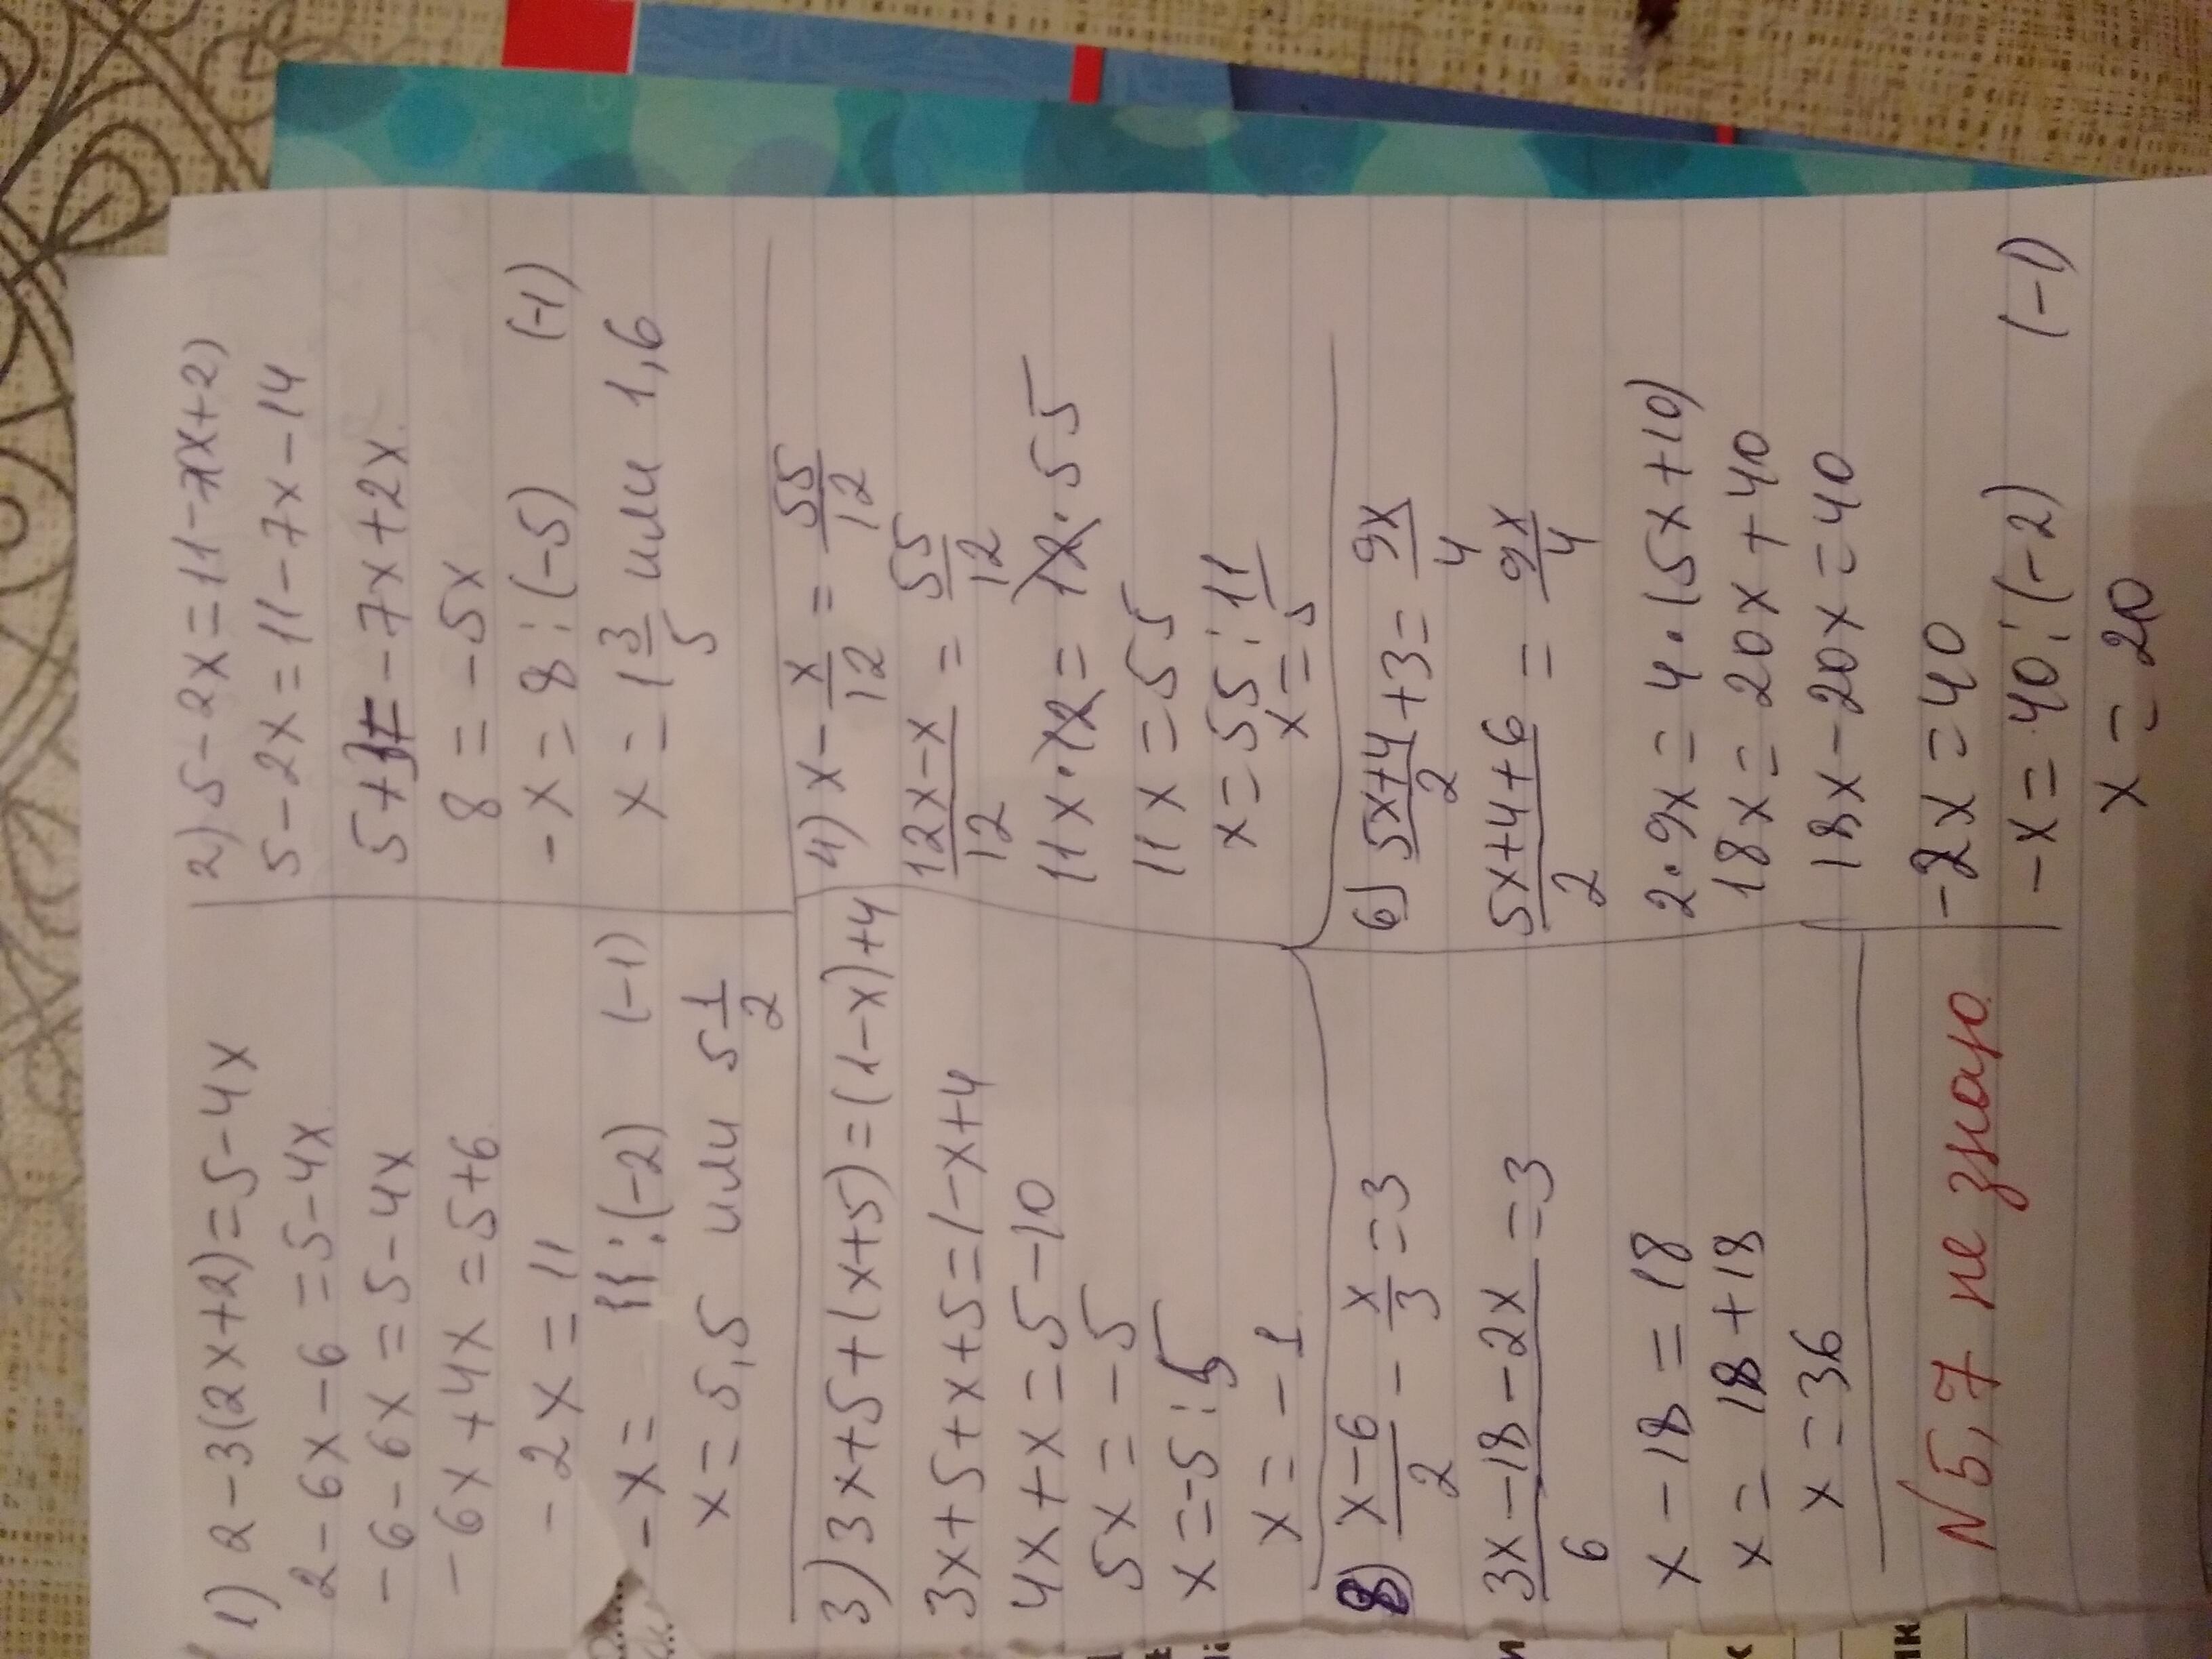 1) 2-3(2x+2)=5-4x
2-6x-6=5-4x
-6-6x=5-4x
-6x+4x=5+6
-2x=11
-x= 11:(-2) (-1)
x=5,5 или 5 1/2
2) 5-2x=11-7(x+2)
5-2x=11-7x-14
5+3=-7x+2x
8=-5x
-x=8:(-5) (-1)
x=1 3/5 или 1,6
3) 3x+5+(x+5)=(1-x)+4
3x+5+x+5=1-x+4
4x+x=5-10
5x=-5
x=-5:5
x=-1
4) x-x/12=55/12
(12x-x)/12=55/12
11x·12=12·55
11x=55
x=55:11
x=5
8) (x-6)/2-x/3=3
(3x-18-2x)/6=3
x-18=18
x=18+18
x=36
6) (5x+4)/2+3=9x/4
(5x+4+6)/2=9x/4
2·9x=4·(5x+10)
18x=20x+40
18x-20x=40
-2x=40
-x=40:(-2) (-1)
x=20
N 5,7 не знаю